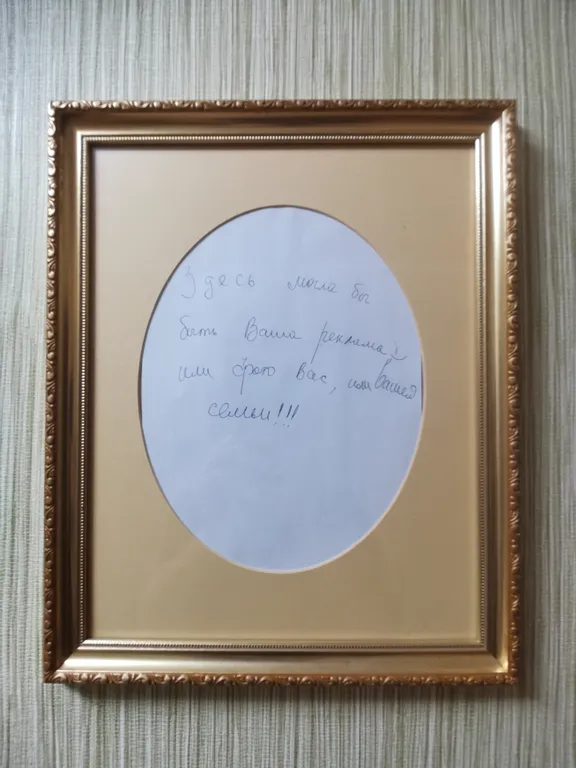 Здесь могла бы
быть Ваша реклама,
или фото Вас, или Вашей
семьи!!!